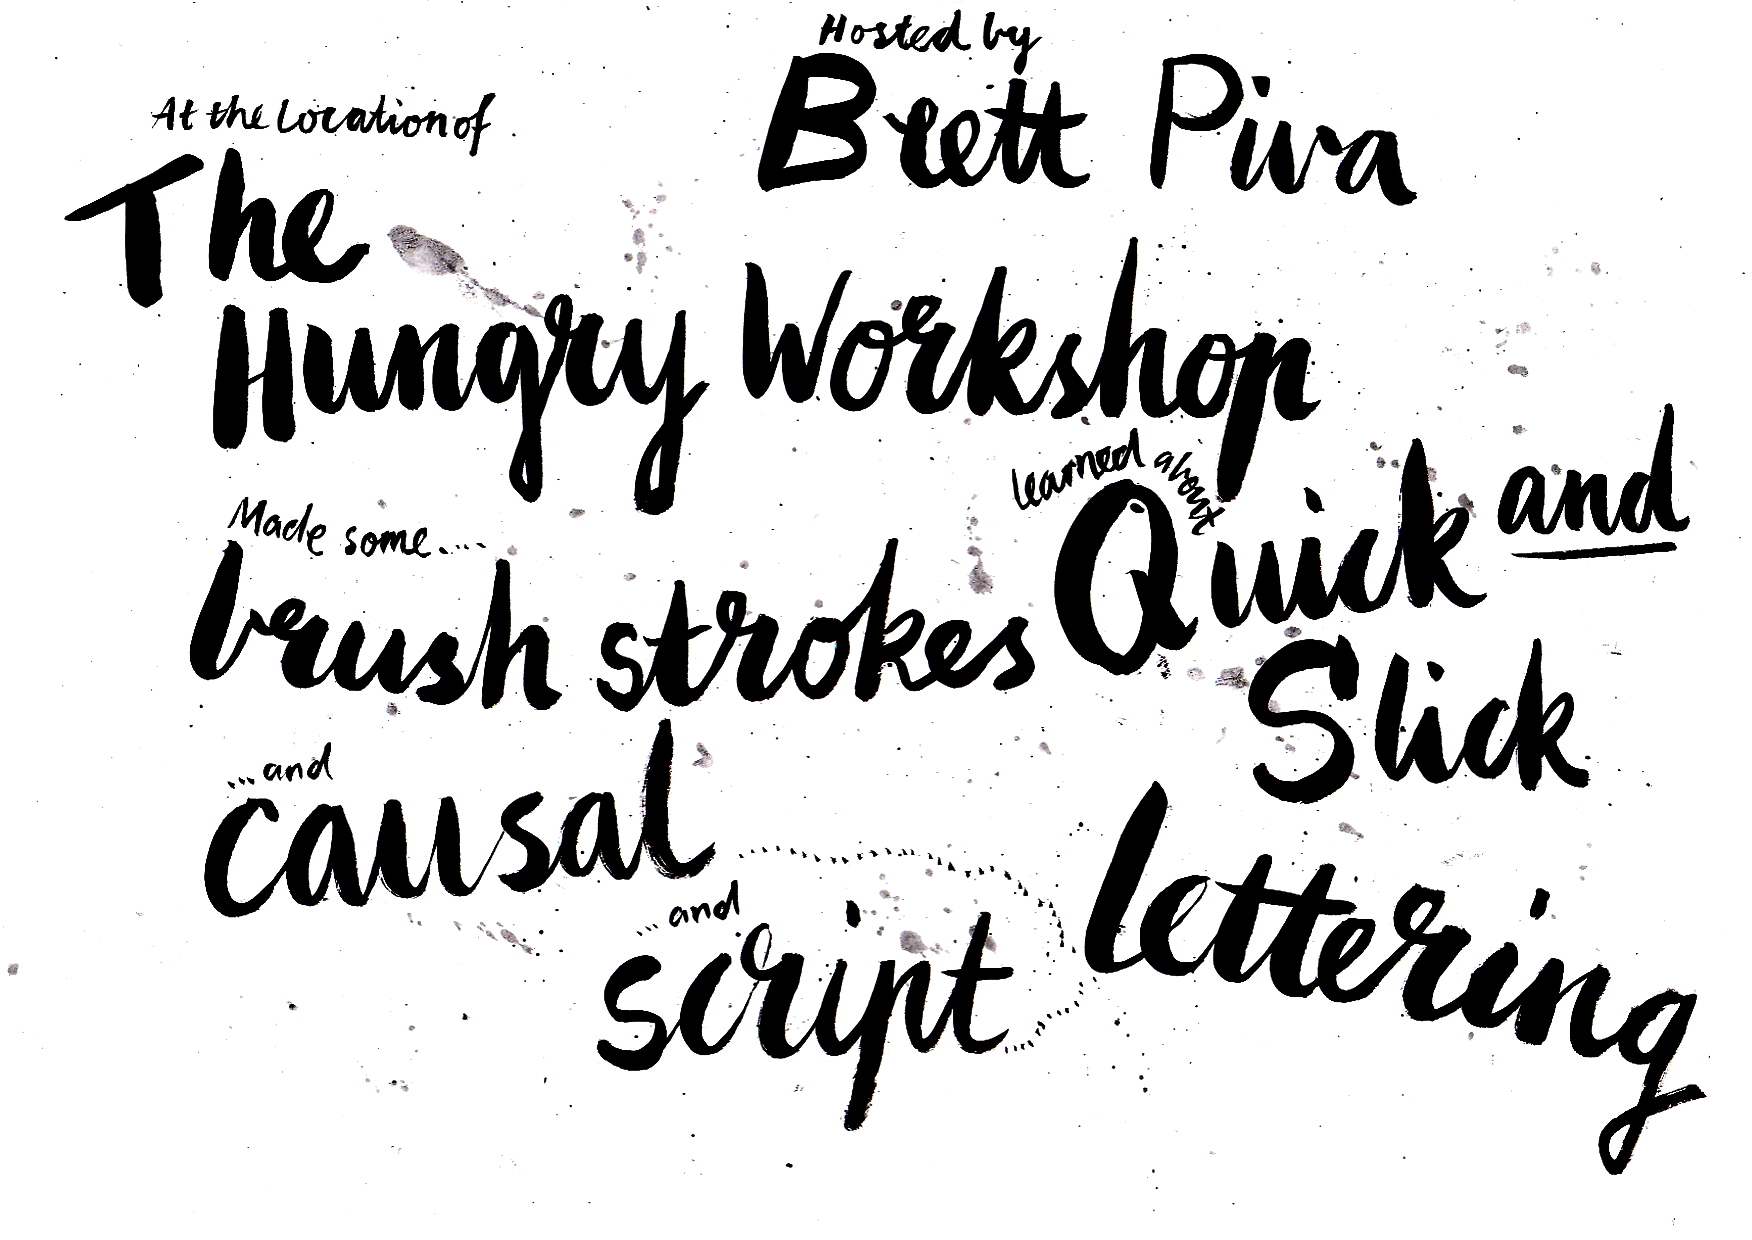 Hosted by
Brett Piva
At the Location of
The
Hungry Workshop
learned about
Quick and
Slick
lettering
Made some....
brush strokes
...and
causal
...and
script